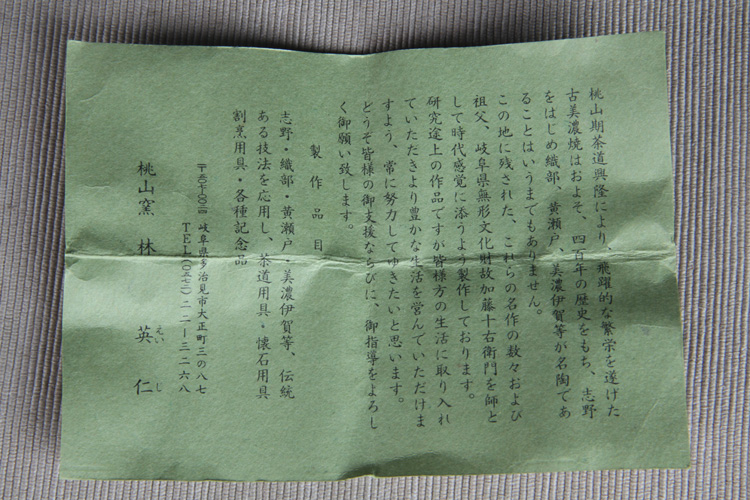 桃山期茶道興隆により、飛躍的な繁栄を遂げた
古美濃焼はおよそ、四百年の歴史をもち、志野
をはじめ織部、黄瀬戸、美濃伊賀等が名陶であ
ることはいうまでもありません。
この地に残された、これらの名作の数々および
祖父、岐阜県無形文化財故加藤十右衛門を師と
して時代感覚に添うよう製作しております。
研究途上の作品ですが皆様方の生活に取り入れ
ていただきより豊かな生活を営んでいただけま
すよう、常に努力してゆきたいと思います。
どうぞ皆様の御支援ならびに、御指導をよろし
く御願い致します。
製作品目
志野・織部・黄瀬戸・美濃伊賀等、伝統
ある技法を応用し、茶道用具・懐石用具
割烹用具・各種記念品
岐阜県多治見市大正町三の八七
TEL(〇五七二)二二ー三二六八
桃山窯 林 英仁
えい し